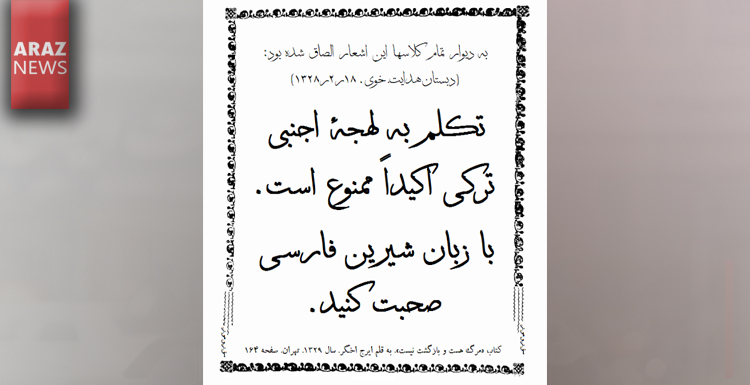 ARAZ
NEWS
به دیوار تمام کلاسها این اشعار الصاق شده بود:
(دبستان هدایت خوی. ۱۸ر۲ر۱۳۲۸)
تکلم به لهجهٔ اجنبی
ترکی اکیداً ممنوع است.
با زبان شیرین فارسی
صحبت کنید.
کتاب «مرگ هست و بازگشت نیست». به قلم ایرج اخگر. سال ۱۳۲۹. تهران. صفحه ۱۶۴